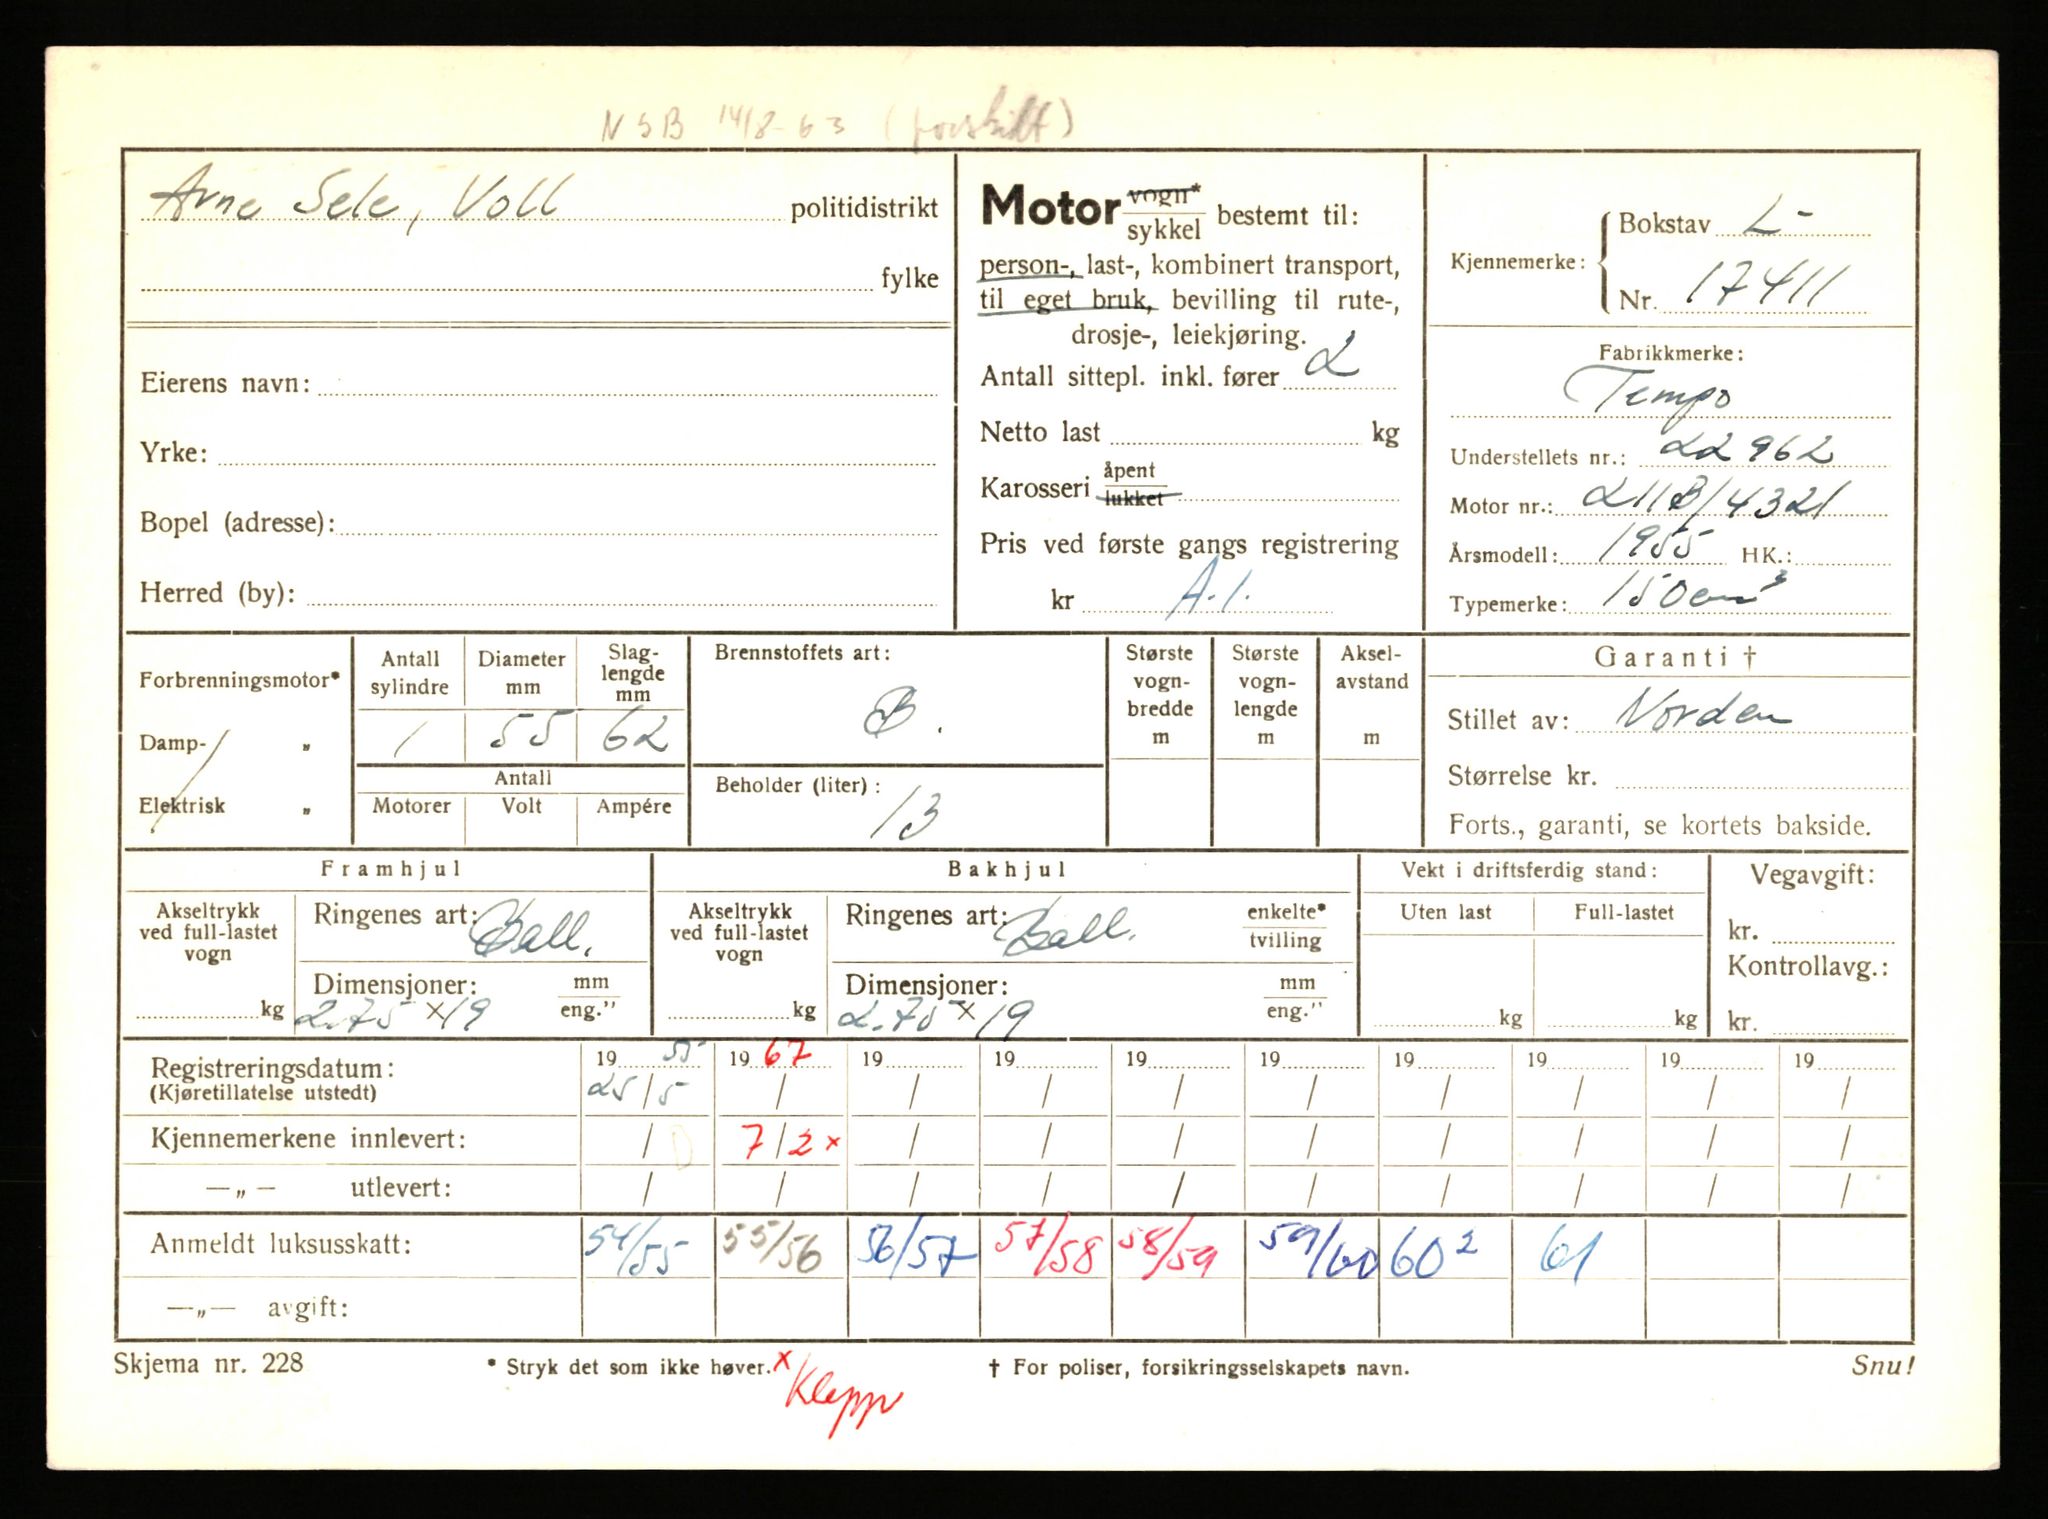 NSB 14/8-63 (forskilt)
Arne Sele, Voll politidistrikt
fylke
Eierens navn:
Yrke:
Bopel (adresse):
Herred (by):
Motor vogn* / sykkel bestemt til:
person-, last-, kombinert transport,
til eget bruk, bevilling til rute-,
drosje-, leiekjøring.
Antall sittepl. inkl. fører 2
Netto last kg
Karosseri åpent / lukket
Pris ved første gangs registrering
kr A.1.
Kjennemerke: Bokstav L-
Nr. 17411
Fabrikkmerke:
Tempo
Understellets nr.: 22962
Motor nr.: 211B/4321
Årsmodell: 1955 HK.:
Typemerke: 150cm³
Forbrenningsmotor*
Damp- „
Elektrisk „
Antall sylindre 1
Diameter mm 55
Slaglengde mm 62
Antall
Motorer Volt Ampére
Brennstoffets art:
B.
Beholder (liter):
13
Største vogn-bredde m
Største vogn-lengde m
Aksel-avstand m
Garanti †
Stillet av: Norden
Størrelse kr.
Forts., garanti, se kortets bakside.
Framhjul
Akseltrykk ved full-lastet vogn
kg
Ringenes art: Ball.
Dimensjoner: mm / eng."
2.75 x 19
Bakhjul
Akseltrykk ved full-lastet vogn
kg
Ringenes art: Ball. enkelte* / tvilling
Dimensjoner: mm / eng."
2.75 x 19
Vekt i driftsferdig stand:
Uten last Full-lastet
kg kg
Vegavgift:
kr.
Kontrollavg.:
kr.
Registreringsdatum: 19 55 19 67 19 19 19 19 19 19 19 19
(Kjøretillatelse utstedt) 25/5 / / / / / / / / /
Kjennemerkene innlevert: / 7/2 x / / / / / / / /
—„— utlevert: / / / / / / / / / /
Anmeldt luksusskatt: 54/55 55/56 56/57 57/58 58/59 59/60 60² 61
—„— avgift:
Skjema nr. 228 * Stryk det som ikke høver. x Klepp † For poliser, forsikringsselskapets navn. Snu!